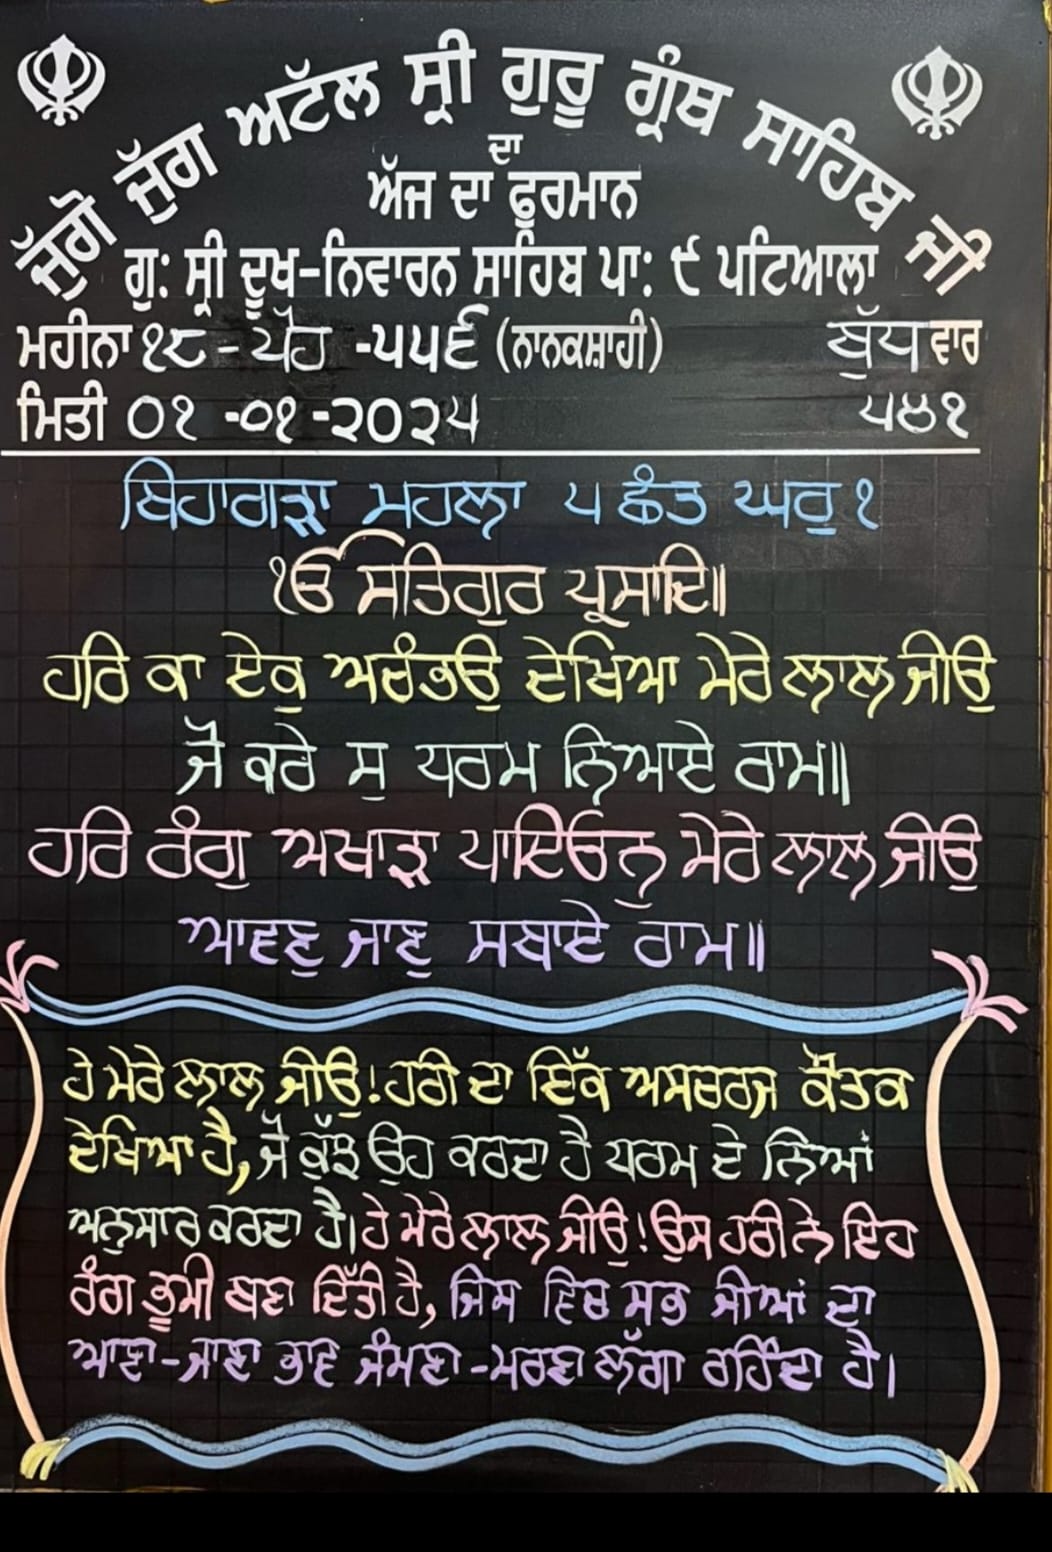 ਜੁੱਗੋ ਜੁੱਗ ਅਟੱਲ ਸ੍ਰੀ ਗੁਰੂ ਗ੍ਰੰਥ ਸਾਹਿਬ ਜੀ
ਦਾ
ਅੱਜ ਦਾ ਫੁਰਮਾਨ
ਗੁ: ਸ੍ਰੀ ਦੂਖ-ਨਿਵਾਰਨ ਸਾਹਿਬ ਪਾ: ੯ ਪਟਿਆਲਾ
ਮਹੀਨਾ ੧੮ - ਪੋਹ - ੫੫੬ (ਨਾਨਕਸ਼ਾਹੀ) ਬੁੱਧ ਵਾਰ
ਮਿਤੀ ੦੧ -੦੧ -੨੦੨੫ ੫੪੧
ਬਿਹਾਗੜਾ ਮਹਲਾ ੫ ਛੰਤ ਘਰੁ ੧
ੴ ਸਤਿਗੁਰ ਪ੍ਰਸਾਦਿ॥
ਹਰਿ ਕਾ ਏਕੁ ਅਚੰਭਉ ਦੇਖਿਆ ਮੇਰੇ ਲਾਲ ਜੀਉ
ਜੋ ਕਰੇ ਸੁ ਧਰਮ ਨਿਆਏ ਰਾਮ॥
ਹਰਿ ਰੰਗੁ ਅਖਾੜਾ ਪਾਇਓਨੁ ਮੇਰੇ ਲਾਲ ਜੀਉ
ਆਵਣੁ ਜਾਣੁ ਸਬਾਏ ਰਾਮ॥
ਹੇ ਮੇਰੇ ਲਾਲ ਜੀਉ! ਹਰੀ ਦਾ ਇੱਕ ਅਸਚਰਜ ਕੌਤਕ
ਦੇਖਿਆ ਹੈ, ਜੋ ਕੁੱਝ ਉਹ ਕਰਦਾ ਹੈ ਧਰਮ ਦੇ ਨਿਆਂ
ਅਨੁਸਾਰ ਕਰਦਾ ਹੈ। ਹੇ ਮੇਰੇ ਲਾਲ ਜੀਉ! ਉਸ ਹਰੀ ਨੇ ਇਹ
ਰੰਗ ਭੂਮੀ ਬਣਾ ਦਿੱਤੀ ਹੈ, ਜਿਸ ਵਿਚ ਸਭ ਜੀਆਂ ਦਾ
ਆਣਾ-ਜਾਣਾ ਭਾਵ ਜੰਮਣਾ-ਮਰਣਾ ਲੱਗਾ ਰਹਿੰਦਾ ਹੈ।